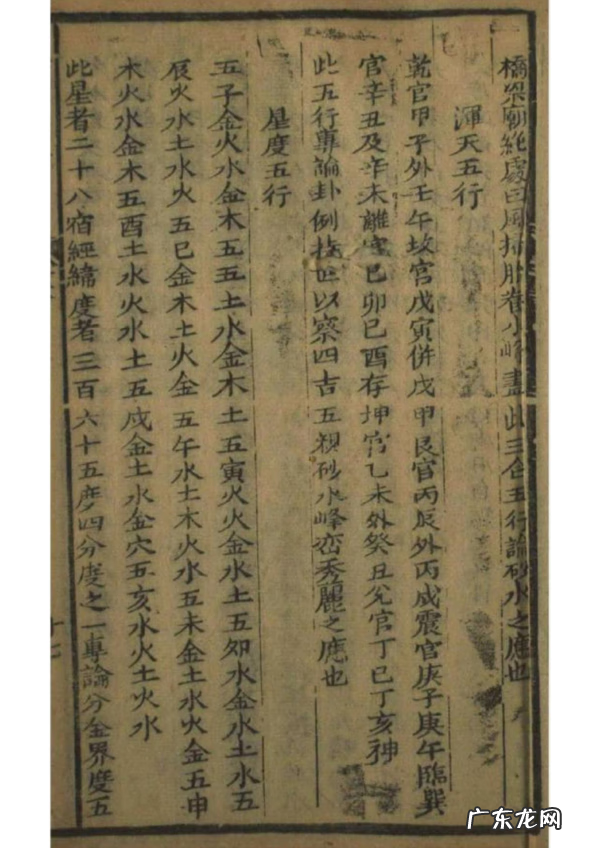 橋梁廟絶處曰風掃脚卷小峰盡此三合五行論砂水之應也
渾天五行
乾宮甲子外壬午坎宮戊寅併戊甲艮官丙辰外丙戌震官庚子庚午臨巽
官辛丑及辛未離宮己卯己酉存坤官乙未外癸丑兊官丁巳丁亥神
此五行專論卦例抽世以察四吉五親砂水峰巒秀麗之應也
星度五行
五子金火水金木五五土水金木土五寅火火金水土五夘水金水土水五
辰火水土水火五巳金木土火金五午水土木火水五未金土水火金五申
木火水金木五酉土水火水土五戌金土水金穴五亥水火土火水
此星者二十八宿經緯度者三百六十五度四分度之一專論分金界度五
十七
广东龙网
GDDRAGON.CN